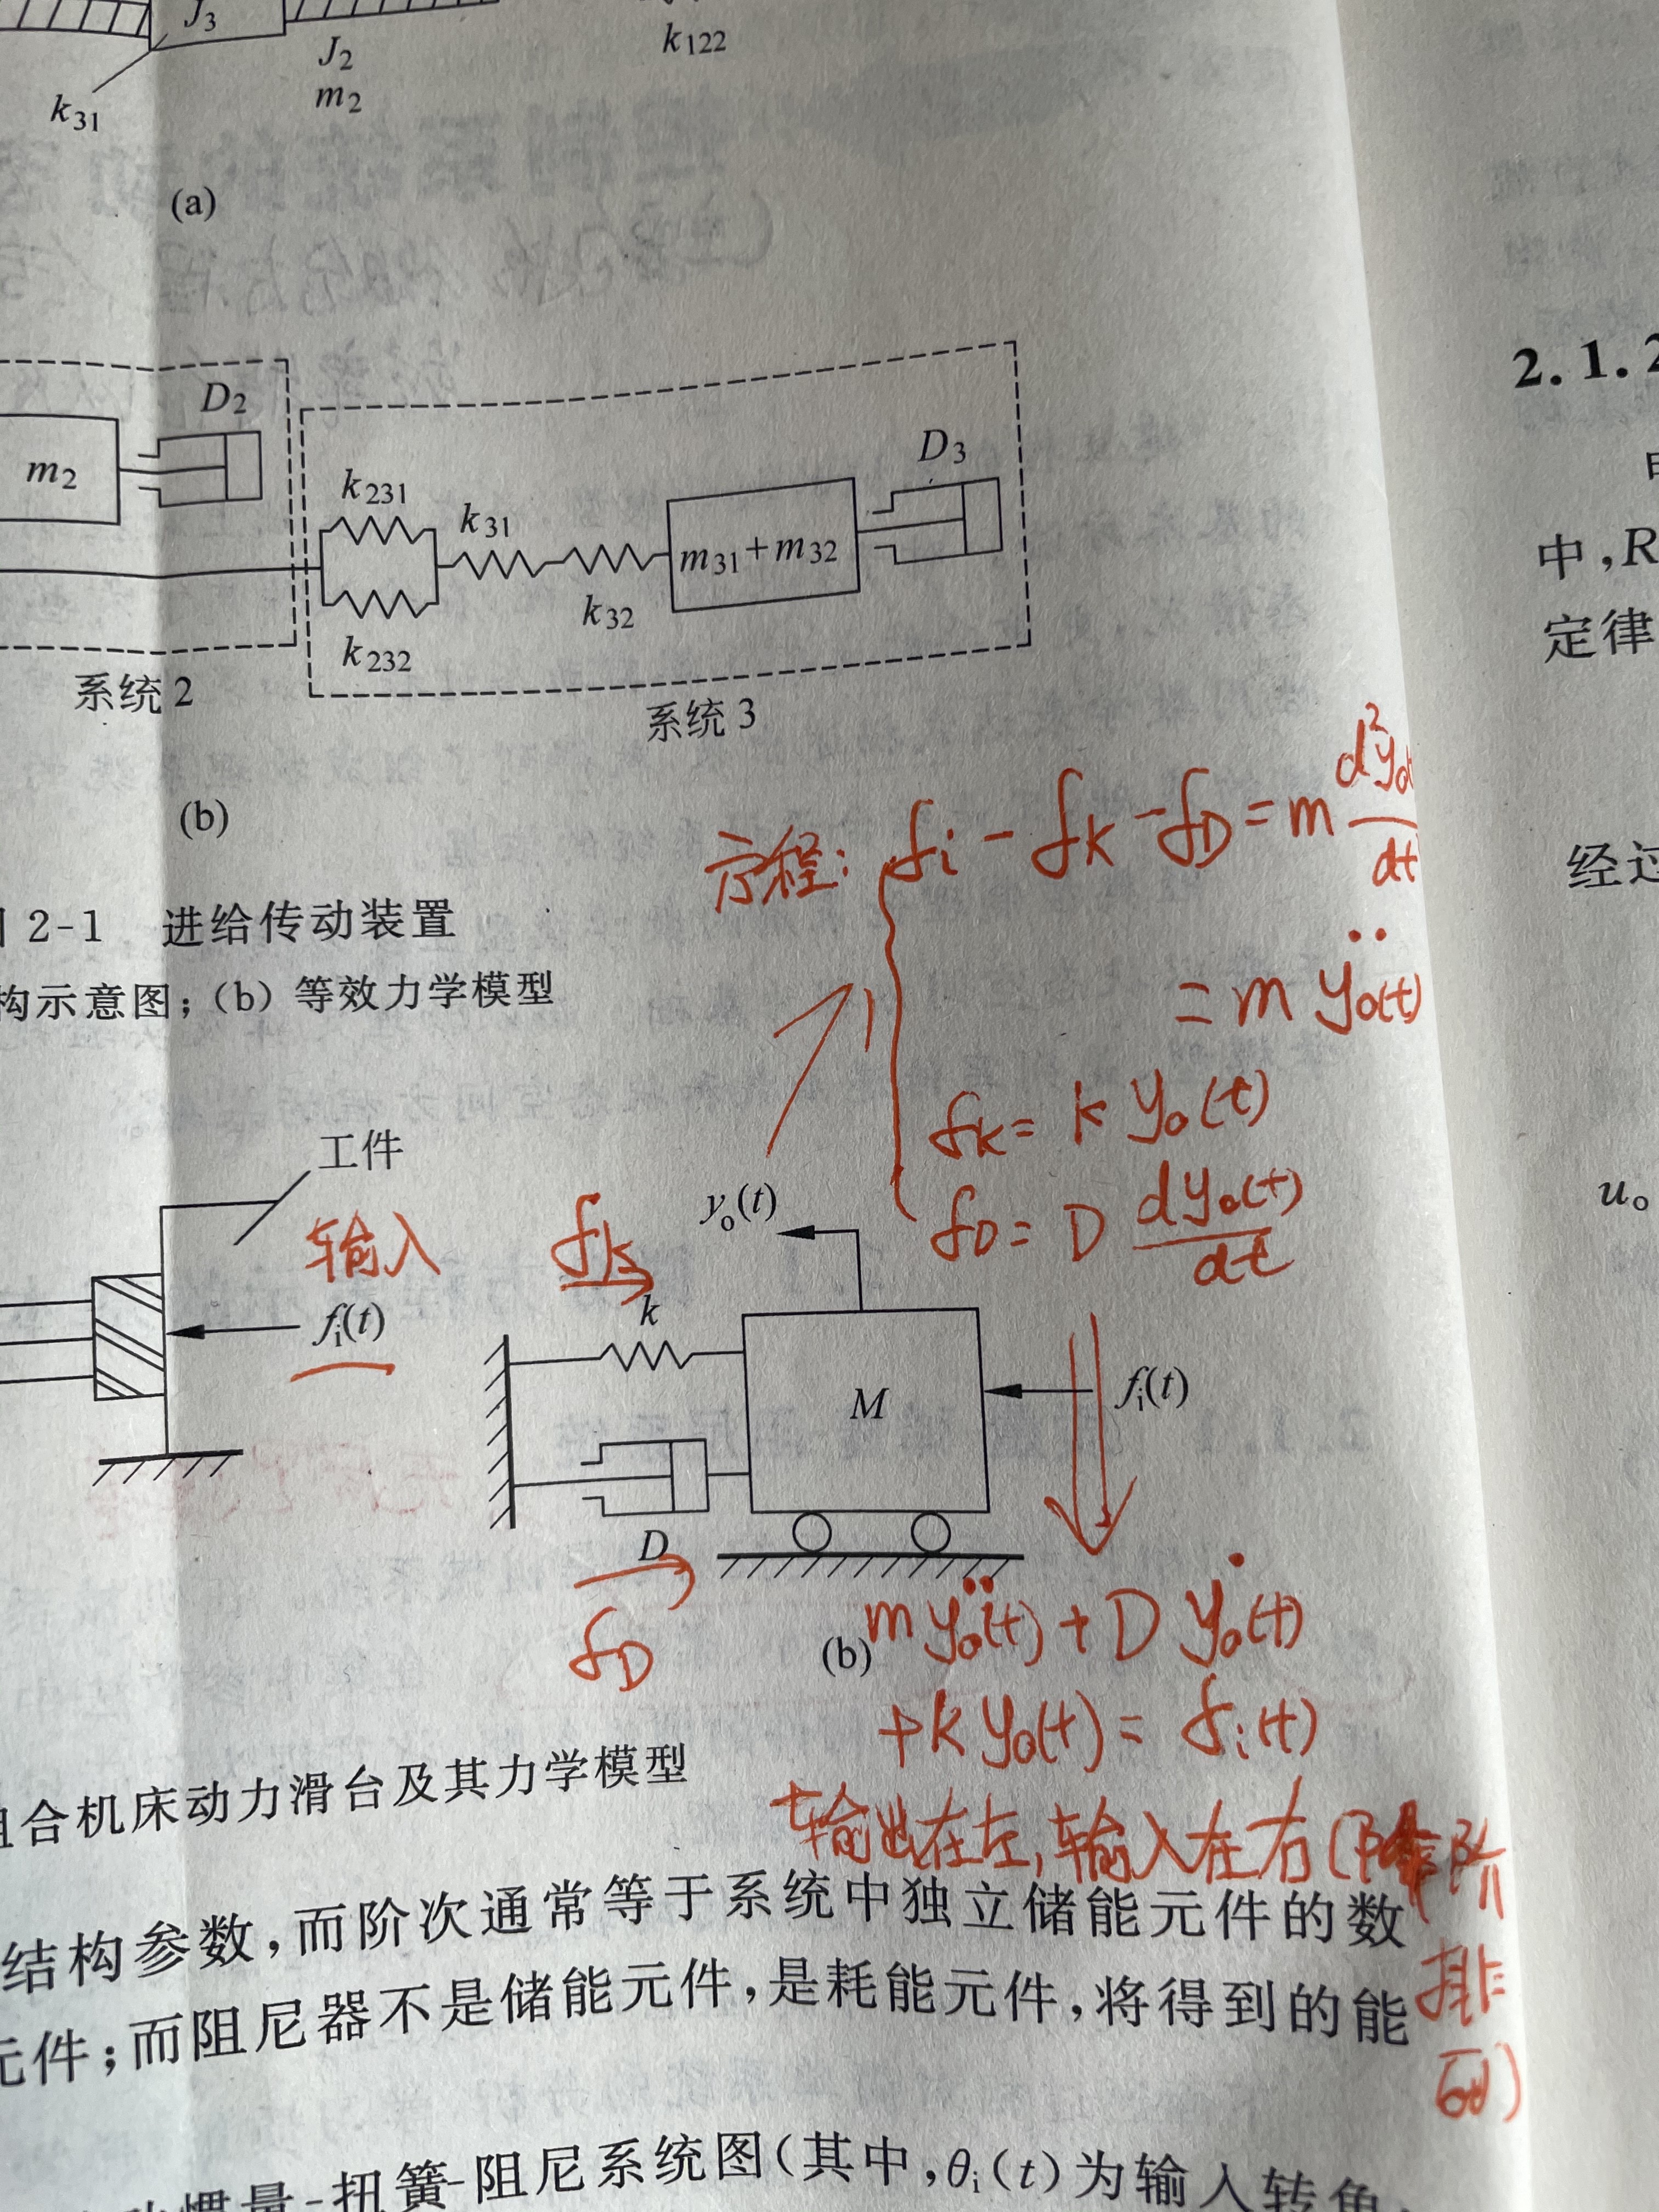 J3
J2
m2
k122
k31
(a)
D2
m2
k231
k31
k32
k232
m31+m32
D3
系统2
系统3
(b)
2-1 进给传动装置
构示意图;(b) 等效力学模型
方程: fi - fK - fD = m d²yo
dt
= m ÿo(t)
fK = k yo(t)
fD = D dyo(t)
dt
工件
输入
fi(t)
fk
yo(t)
k
M
fi(t)
D
fD
(b)
m ÿo(t) + D ẏo(t)
+ k yo(t) = fi(t)
组合机床动力滑台及其力学模型
输出在左, 输入在右(降阶
排列)
结构参数,而阶次通常等于系统中独立储能元件的数
元件;而阻尼器不是储能元件,是耗能元件,将得到的能
惯量-扭簧-阻尼系统图(其中,θi(t)为输入转角,
2.1.2
中,R
定律
经过
uo